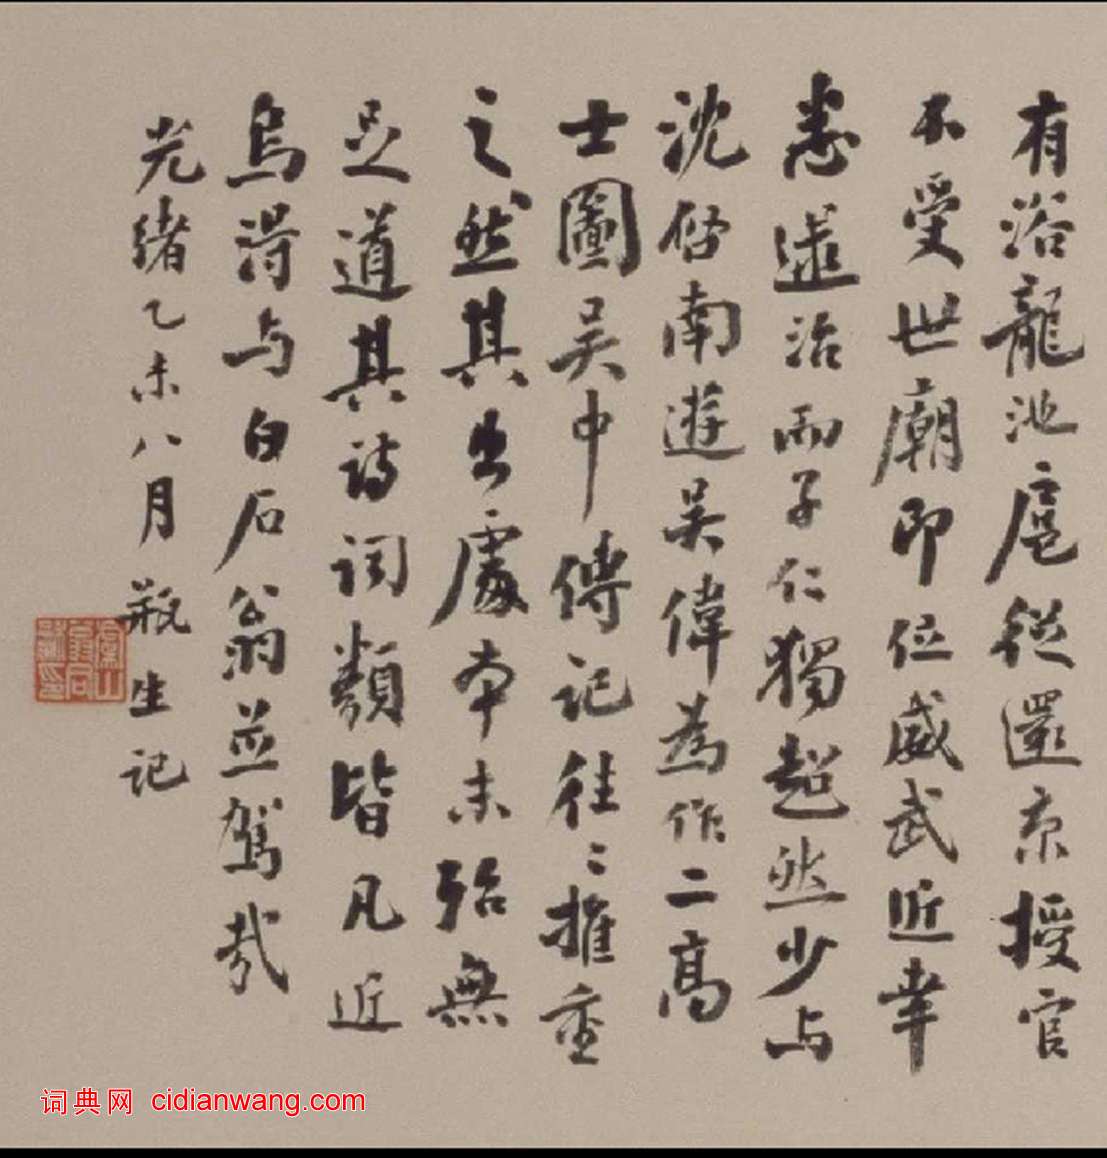 有浴龍池扈從還京授官
不受世廟即位威武近幸
悉逮治而子仁獨超然少与
沈啓南遊吴偉為作二高
士圖吴中傳記往々推重
之然其出處本末殆無
足道其詩詞類皆凡近
烏得与白石翁並駕哉
光緒乙未八月瓶生記
詞典网 cidianwang.com